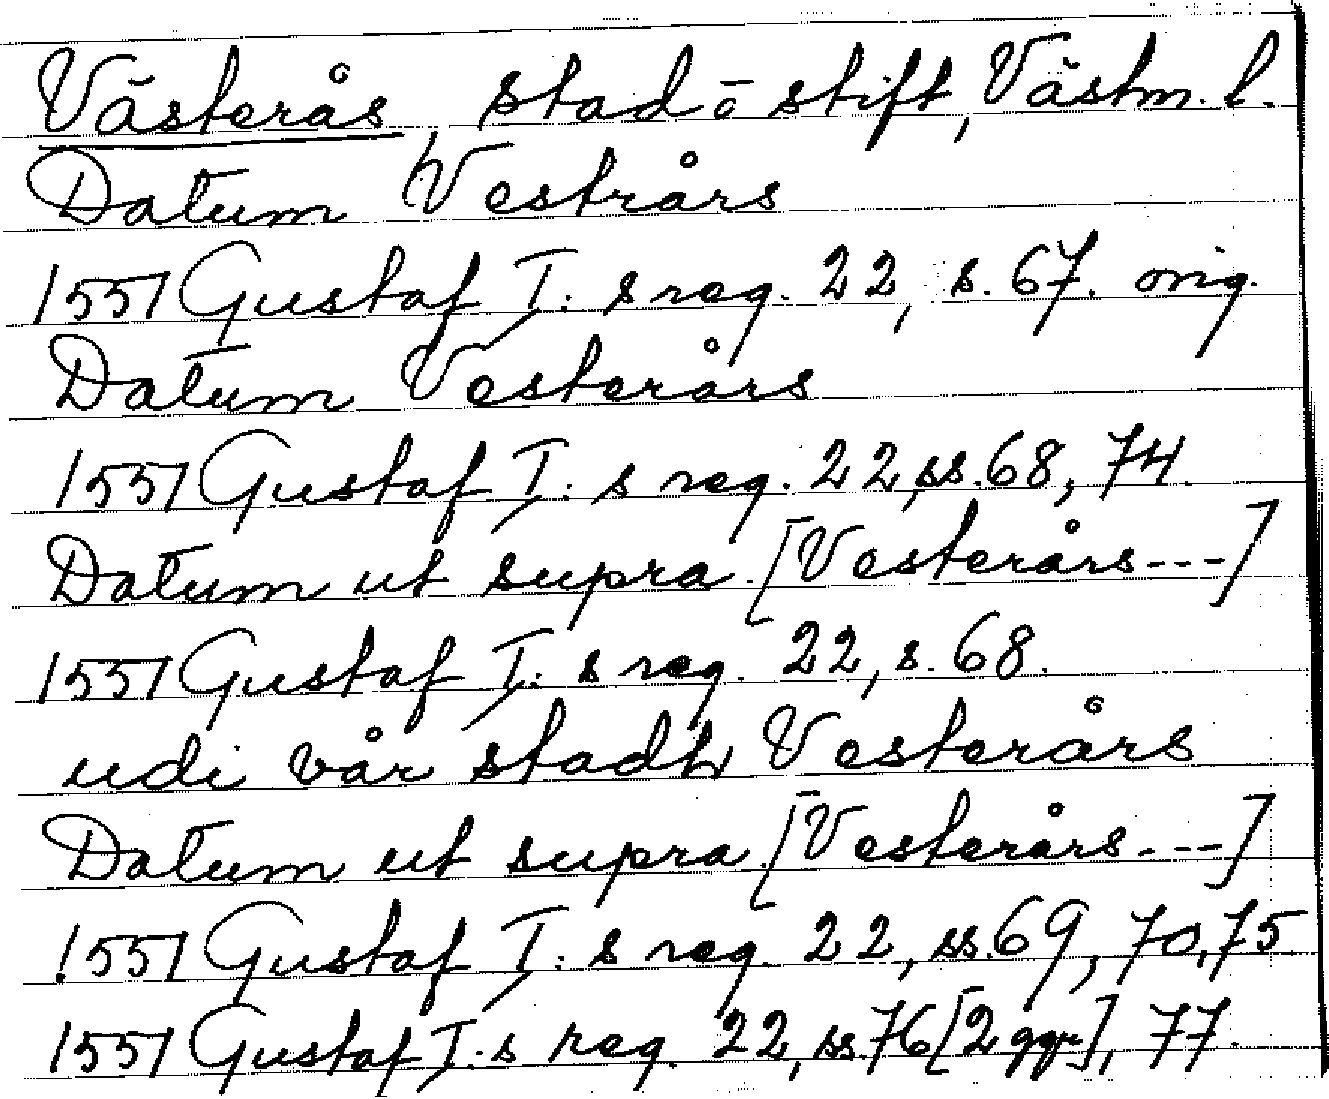 Västerås, stad ō stift, Västm. l.
Datum Vestrårs
1551 Gustaf I: s reg. 22, s. 67. orig.
Datum Vesterårs
1551 Gustaf I: s reg. 22, ss. 68, 74.
Datum ut supra. [Vesterårs---]
1551 Gustaf I: s reg. 22, s. 68.
udi vår stadh Vesterårs
Datum ut supra. [Vesterårs---]
1551 Gustaf I: s reg. 22, ss. 69, 70, 75
1551 Gustaf I: s reg. 22, ss. 76 [2 ggr], 77.